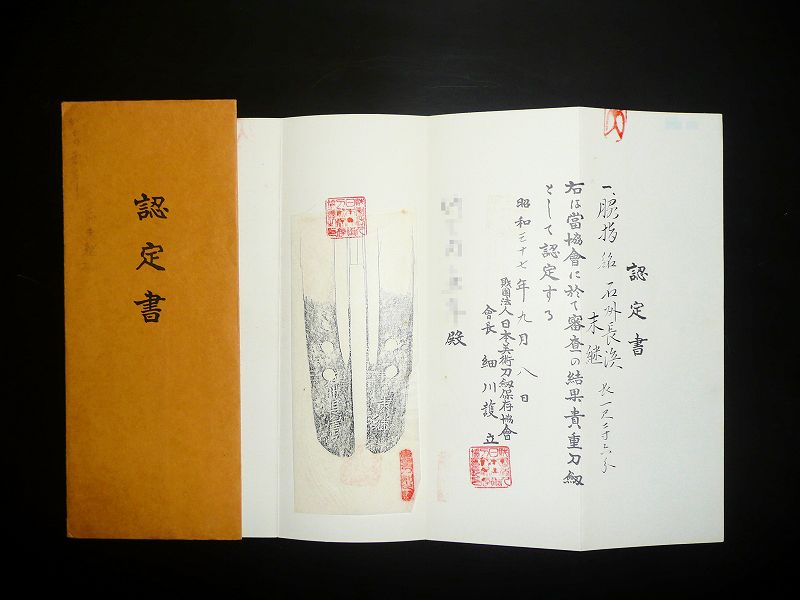 認定書
認定書
一、脇指 銘 石州長浜
末継
長一尺三寸六分
右は當協會に於て審査の結果貴重刀剱
として認定する
昭和三十七年九月八日
財団法人日本美術刀剱保存協會
會長 細川護立
殿